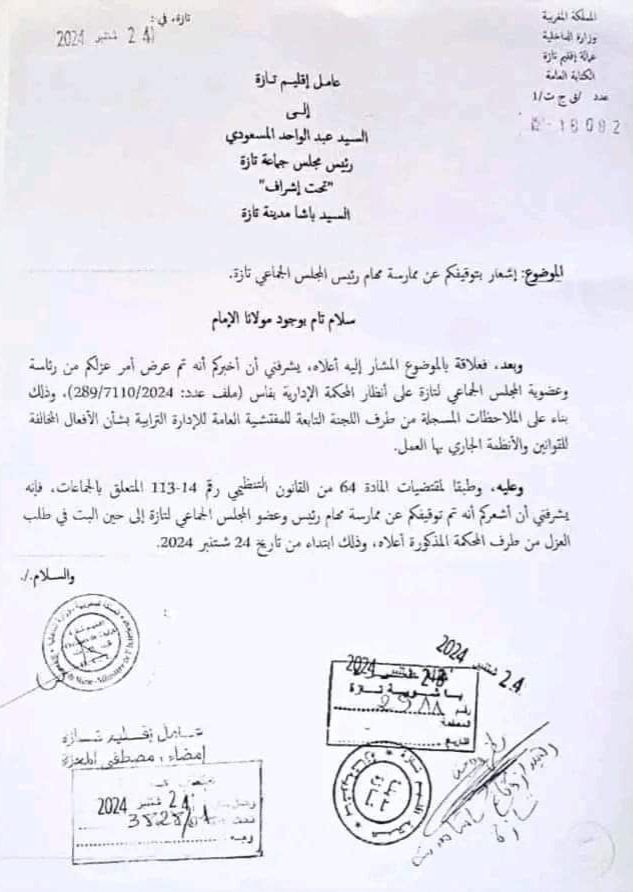 المملكة المغربية
وزارة الداخلية
عمالة إقليم تازة
الكتابة العامة
عدد /ق ج ت/1
18092
تازة، في:
24 شتنبر 2024
عامل إقليم تازة
إلى
السيد عبد الواحد المسعودي
رئيس مجلس جماعة تازة
"تحت إشراف"
السيد باشا مدينة تازة
الموضوع: إشعار بتوقيفكم عن ممارسة مهام رئيس المجلس الجماعي تازة.
سلام تام بوجود مولانا الإمام
وبعد، فعلاقة بالموضوع المشار إليه أعلاه، يشرفني أن أخبركم أنه تم عرض أمر عزلكم من رئاسة
وعضوية المجلس الجماعي لتازة على أنظار المحكمة الإدارية بفاس (ملف عدد: 289/7110/2024)، وذلك
بناء على الملاحظات المسجلة من طرف اللجنة التابعة للمفتشية العامة للإدارة الترابية بشأن الأفعال المخالفة
للقوانين والأنظمة الجاري بها العمل.
وعليه، وطبقا لمقتضيات المادة 64 من القانون التنظيمي رقم 14-113 المتعلق بالجماعات، فإنه
يشرفني أن أشعركم أنه تم توقيفكم عن ممارسة مهام رئيس وعضو المجلس الجماعي لتازة إلى حين البت في طلب
العزل من طرف المحكمة المذكورة أعلاه، وذلك ابتداء من تاريخ 24 شتنبر 2024.
والسلام./.
عامل إقليم تازة
إمضاء: مصطفى المعزة
24 شتنبر 2024
3828/
24 شتنبر 2024
2024
باشوية تازة
رقم